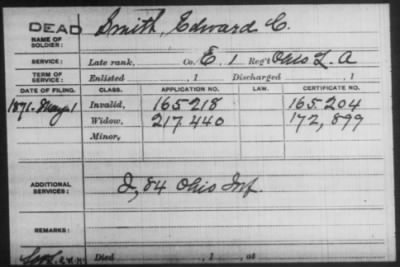 DEAD
NAME OF SOLDIER: Smith, Edward C.
SERVICE: Late rank, Co. E, 1 Reg't Ohio L. A
TERM OF SERVICE: Enlisted , 1 Discharged , 1
DATE OF FILING. CLASS. APPLICATION NO. LAW. CERTIFICATE NO.
1871. May 1 Invalid, 165218 165.204
Widow, 217.440 172,899
Minor,
ADDITIONAL SERVICES: I, 84 Ohio Inf.
REMARKS:
Died , 1 , at